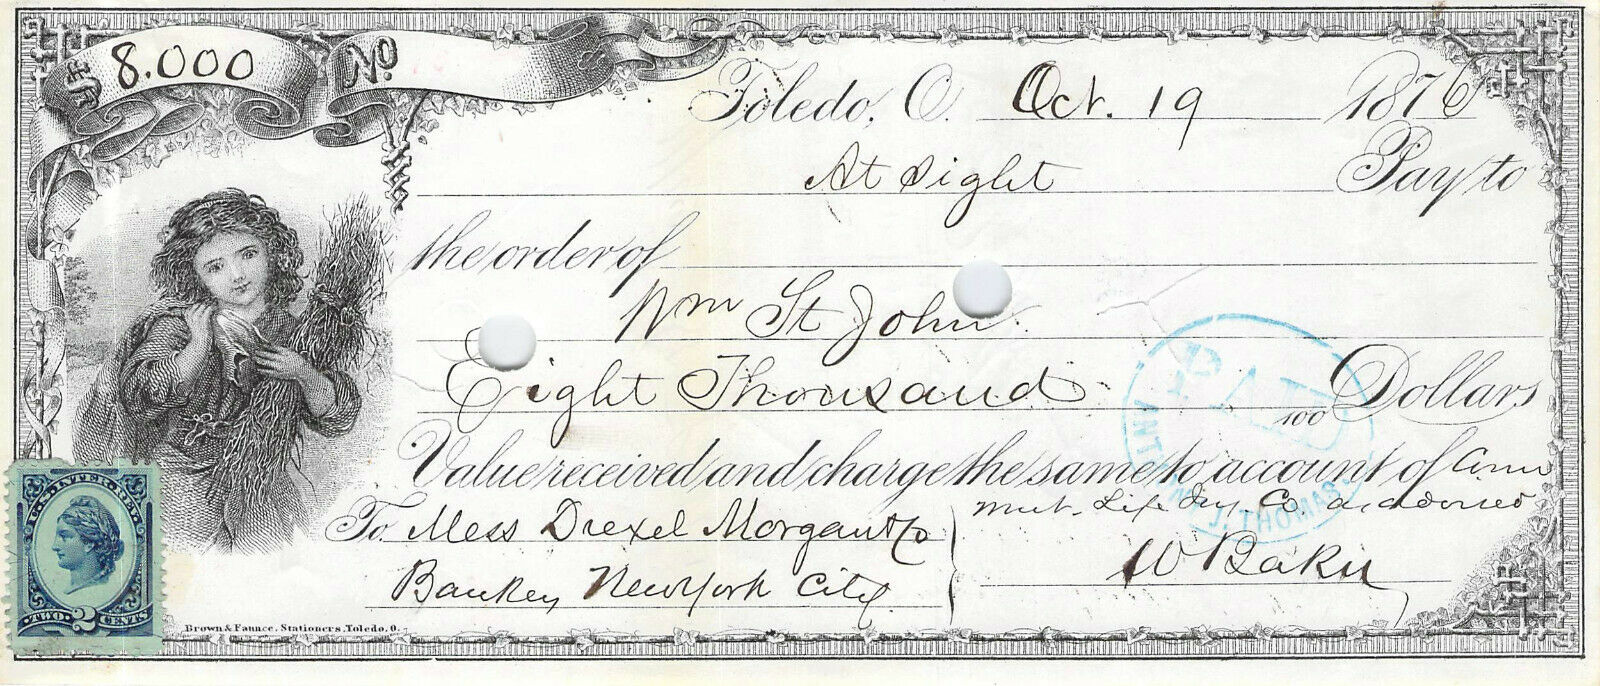 $ 8.000 No
Toledo, O. Oct. 19 1876
At sight Pay to
the order of
Wm St John
Eight Thousand 100 Dollars
Value received and charge the same to account of Conn
Mut. Life Co. as advised
To Mess Drexel Morgan & Co
Bankers New York City
W Baker
PAID
J. THOMAS
U.S. INTER. REV.
TWO 2 CENTS
Brown & Faunce, Stationers, Toledo, O.